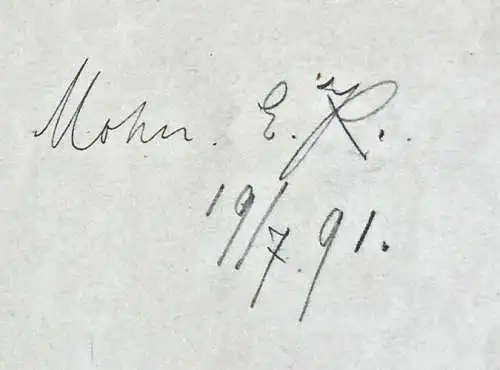 Mohn. E. K.
19/7.91.